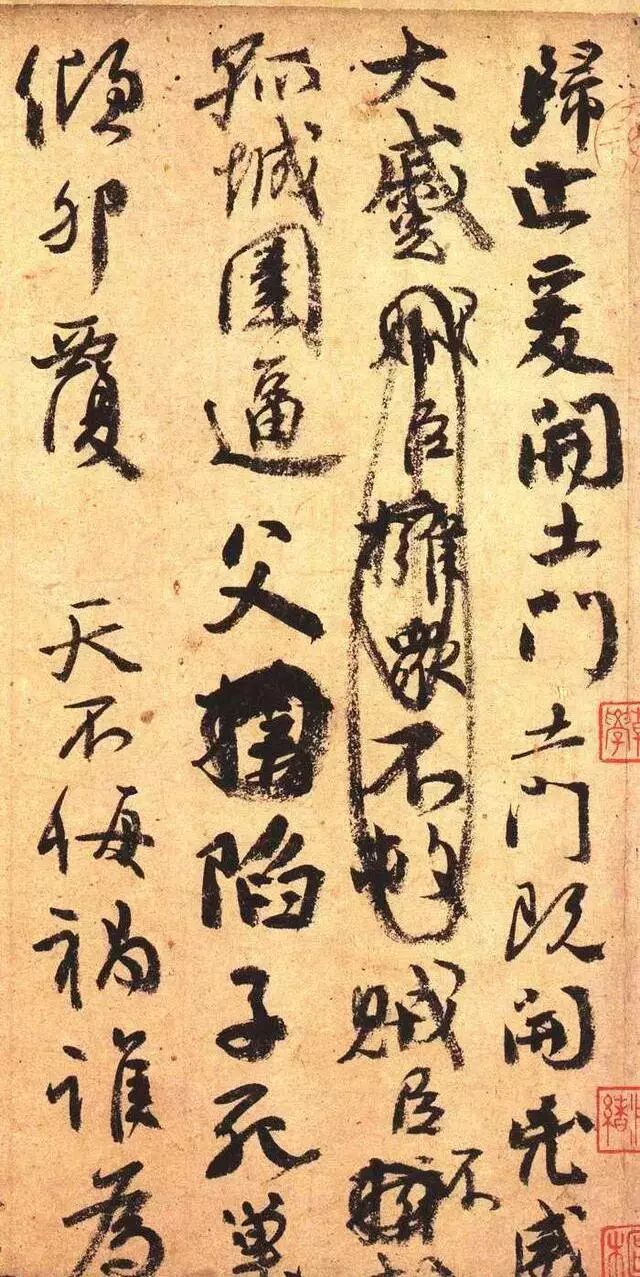 歸止爰開土門土門既開兇威
大蹙賊臣擁眾不救賊臣不
孤城圍逼父陷子死巢
傾卵覆 天不悔禍誰為